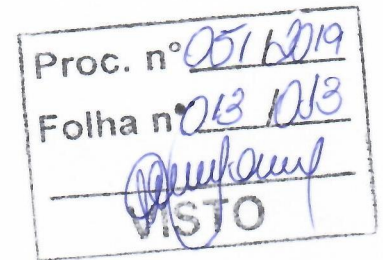 Proc. n° 051/2019
Folha n° 013/013
VISTO